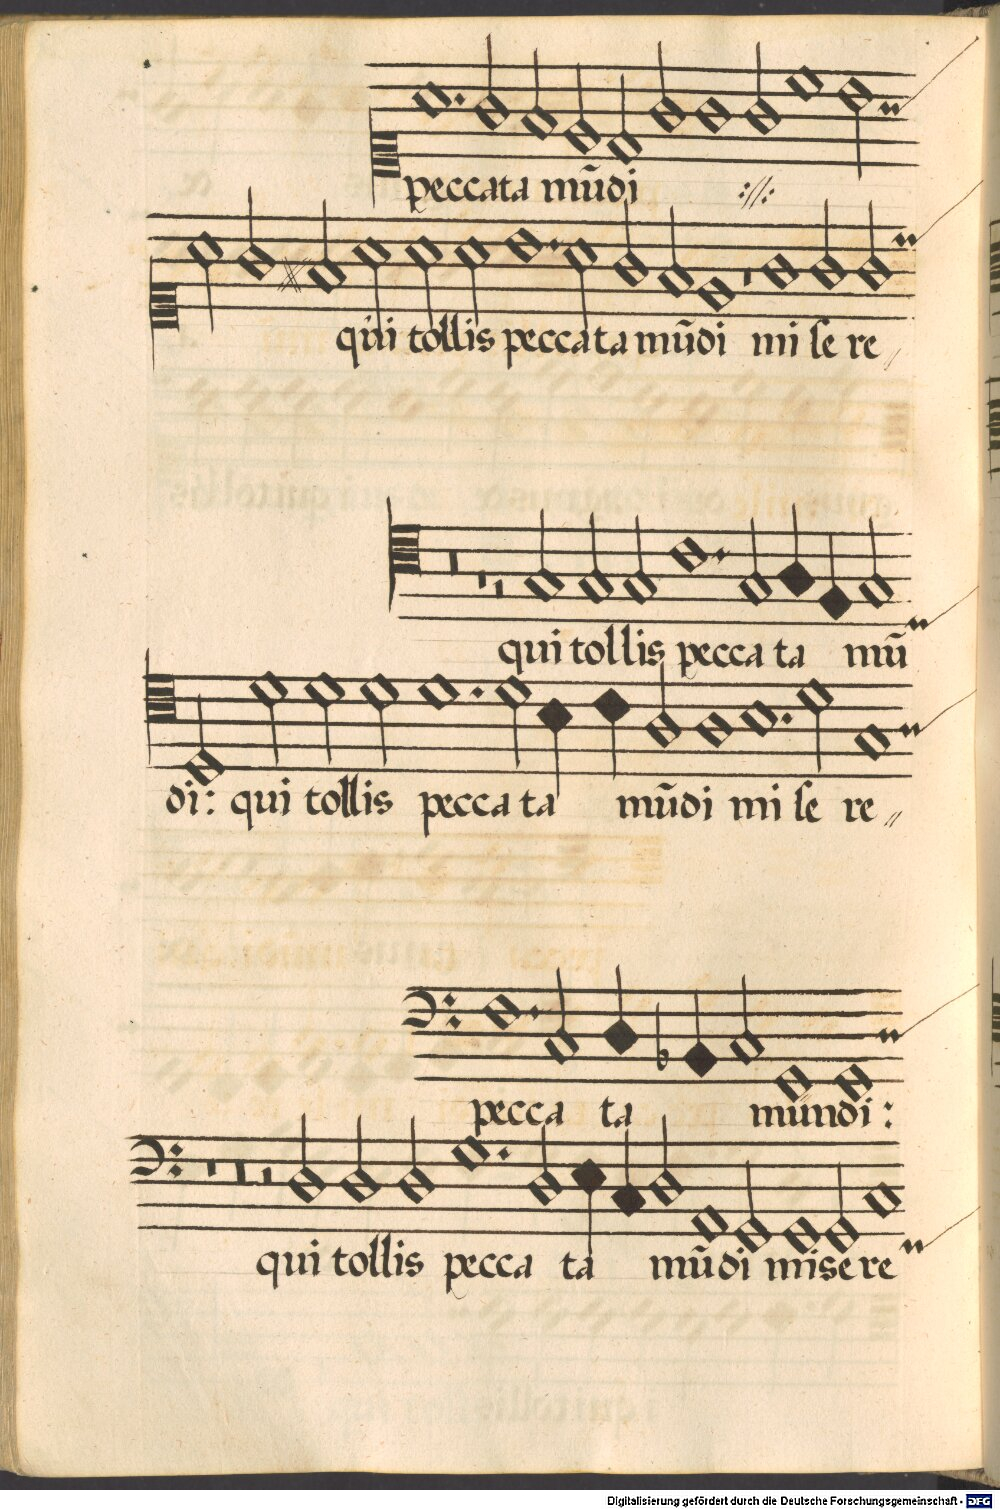 peccata mūdi ://:
qui tollis peccata mūdi mi se re
qui tollis pecca ta mū
di: qui tollis pecca ta mūdi mi se re
pecca ta mundi:
qui tollis pecca ta mūdi misere
Digitalisierung gefördert durch die Deutsche Forschungsgemeinschaft - DFG